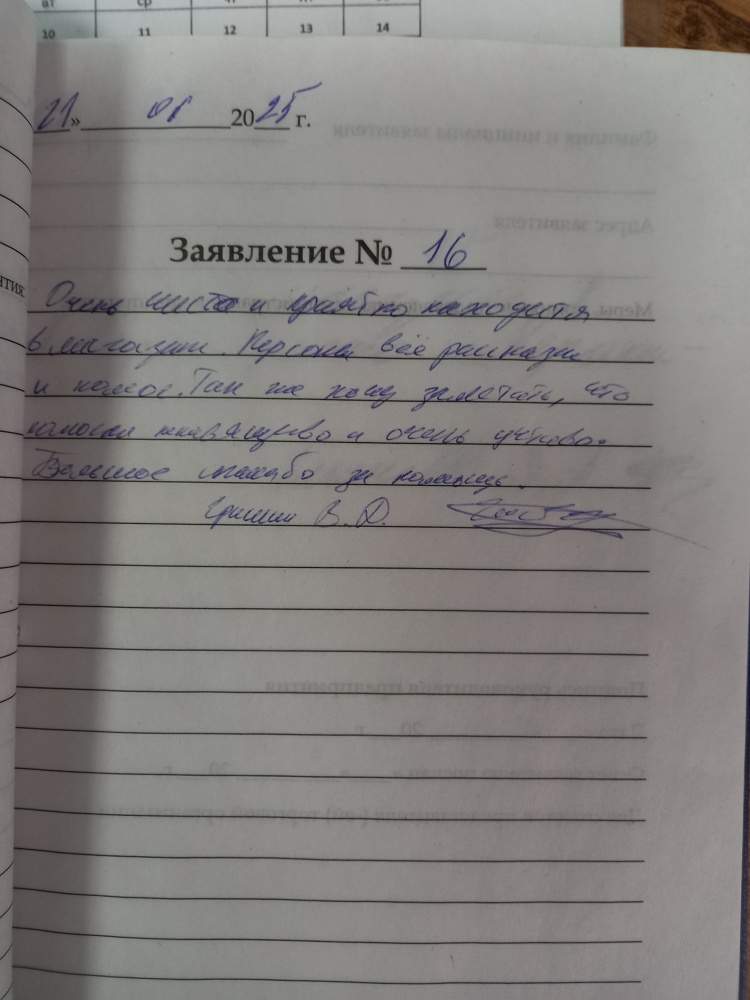 вт ср
10 11 12 13 14
21» 01 2025 г.
Заявление № 16
Очень чисто и приятно находится
в магазин. Персонал всё рассказал
и помог. Так же хочу заметить, что
и очень учтиво.
Большое спасибо за помощь.
В. Д.